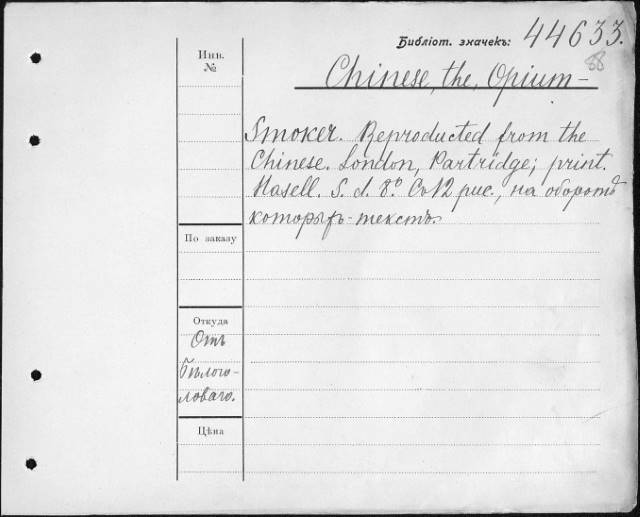 Библіот. значекъ: 44633.
88
Инв.
№
Chinese, the, Opium-
Smoker. Reproducted from the
Chinese. London, Partridge; print.
Hasell. S. d. 8º. Съ 12 рис., на оборотѣ
которыхъ - текстъ.
По заказу
Откуда
Отъ
Бѣлого-
ловаго.
Цѣна